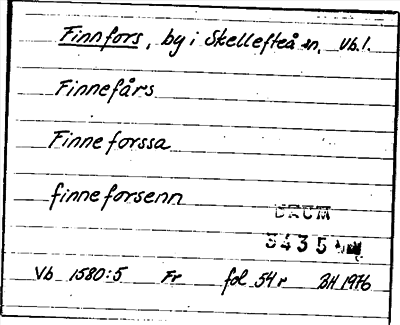 Finnfors, by i Skellefteå sn, Vb.l.
Finnefårs
Finneforssa
finneforsenn
DAUM
3435
Vb 1580:5 Fr fol 54r BH 1976